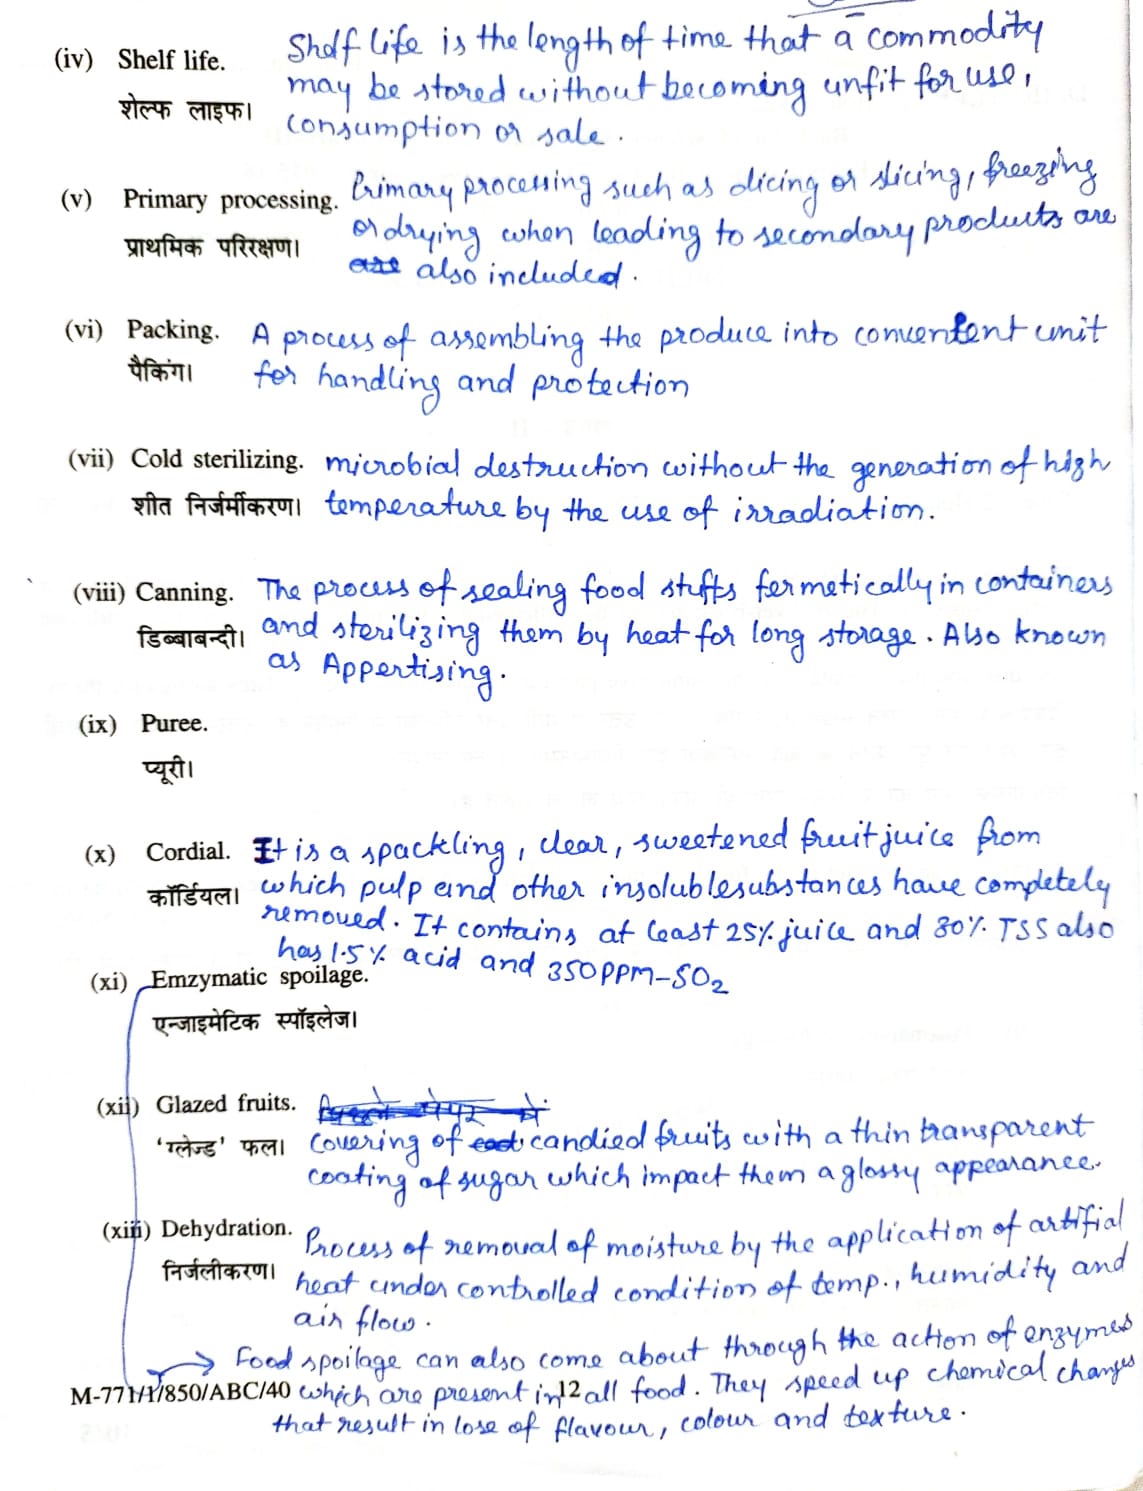 (iv) Shelf life. Shelf life is the length of time that a commodity
may be stored without becoming unfit for use,
शेल्फ लाइफ। consumption or sale.
(v) Primary processing. Primary processing such as dicing or slicing, freezing
प्राथमिक परिरक्षण। or drying when leading to secondary products are
are also included.
(vi) Packing. A process of assembling the produce into convenient unit
पैकिंग। for handling and protection
(vii) Cold sterilizing. microbial destruction without the generation of high
शीत निर्जर्मीकरण। temperature by the use of irradiation.
(viii) Canning. The process of sealing food stuffs fermetically in containers
डिब्बाबन्दी। and sterilizing them by heat for long storage. Also known
as Appertising.
(ix) Puree.
प्यूरी।
(x) Cordial. It is a spackling, clear, sweetened fruit juice from
कॉर्डियल। which pulp and other insoluble substances have completely
removed. It contains at least 25% juice and 30% TSS also
has 1.5% acid and 350 PPM-SO2
(xi) Emzymatic spoilage.
एन्जाइमेटिक स्पॉइलेज।
(xii) Glazed fruits.
'ग्लेज्ड' फल। Covering of candied fruits with a thin transparent
coating of sugar which impact them a glossy appearance.
(xiii) Dehydration. Process of removal of moisture by the application of artifial
निर्जलीकरण। heat under controlled condition of temp., humidity and
air flow.
→ Food spoilage can also come about through the action of enzymes
M-771/1/850/ABC/40 which are present in 12 all food. They speed up chemical changes
that result in lose of flavour, colour and texture.